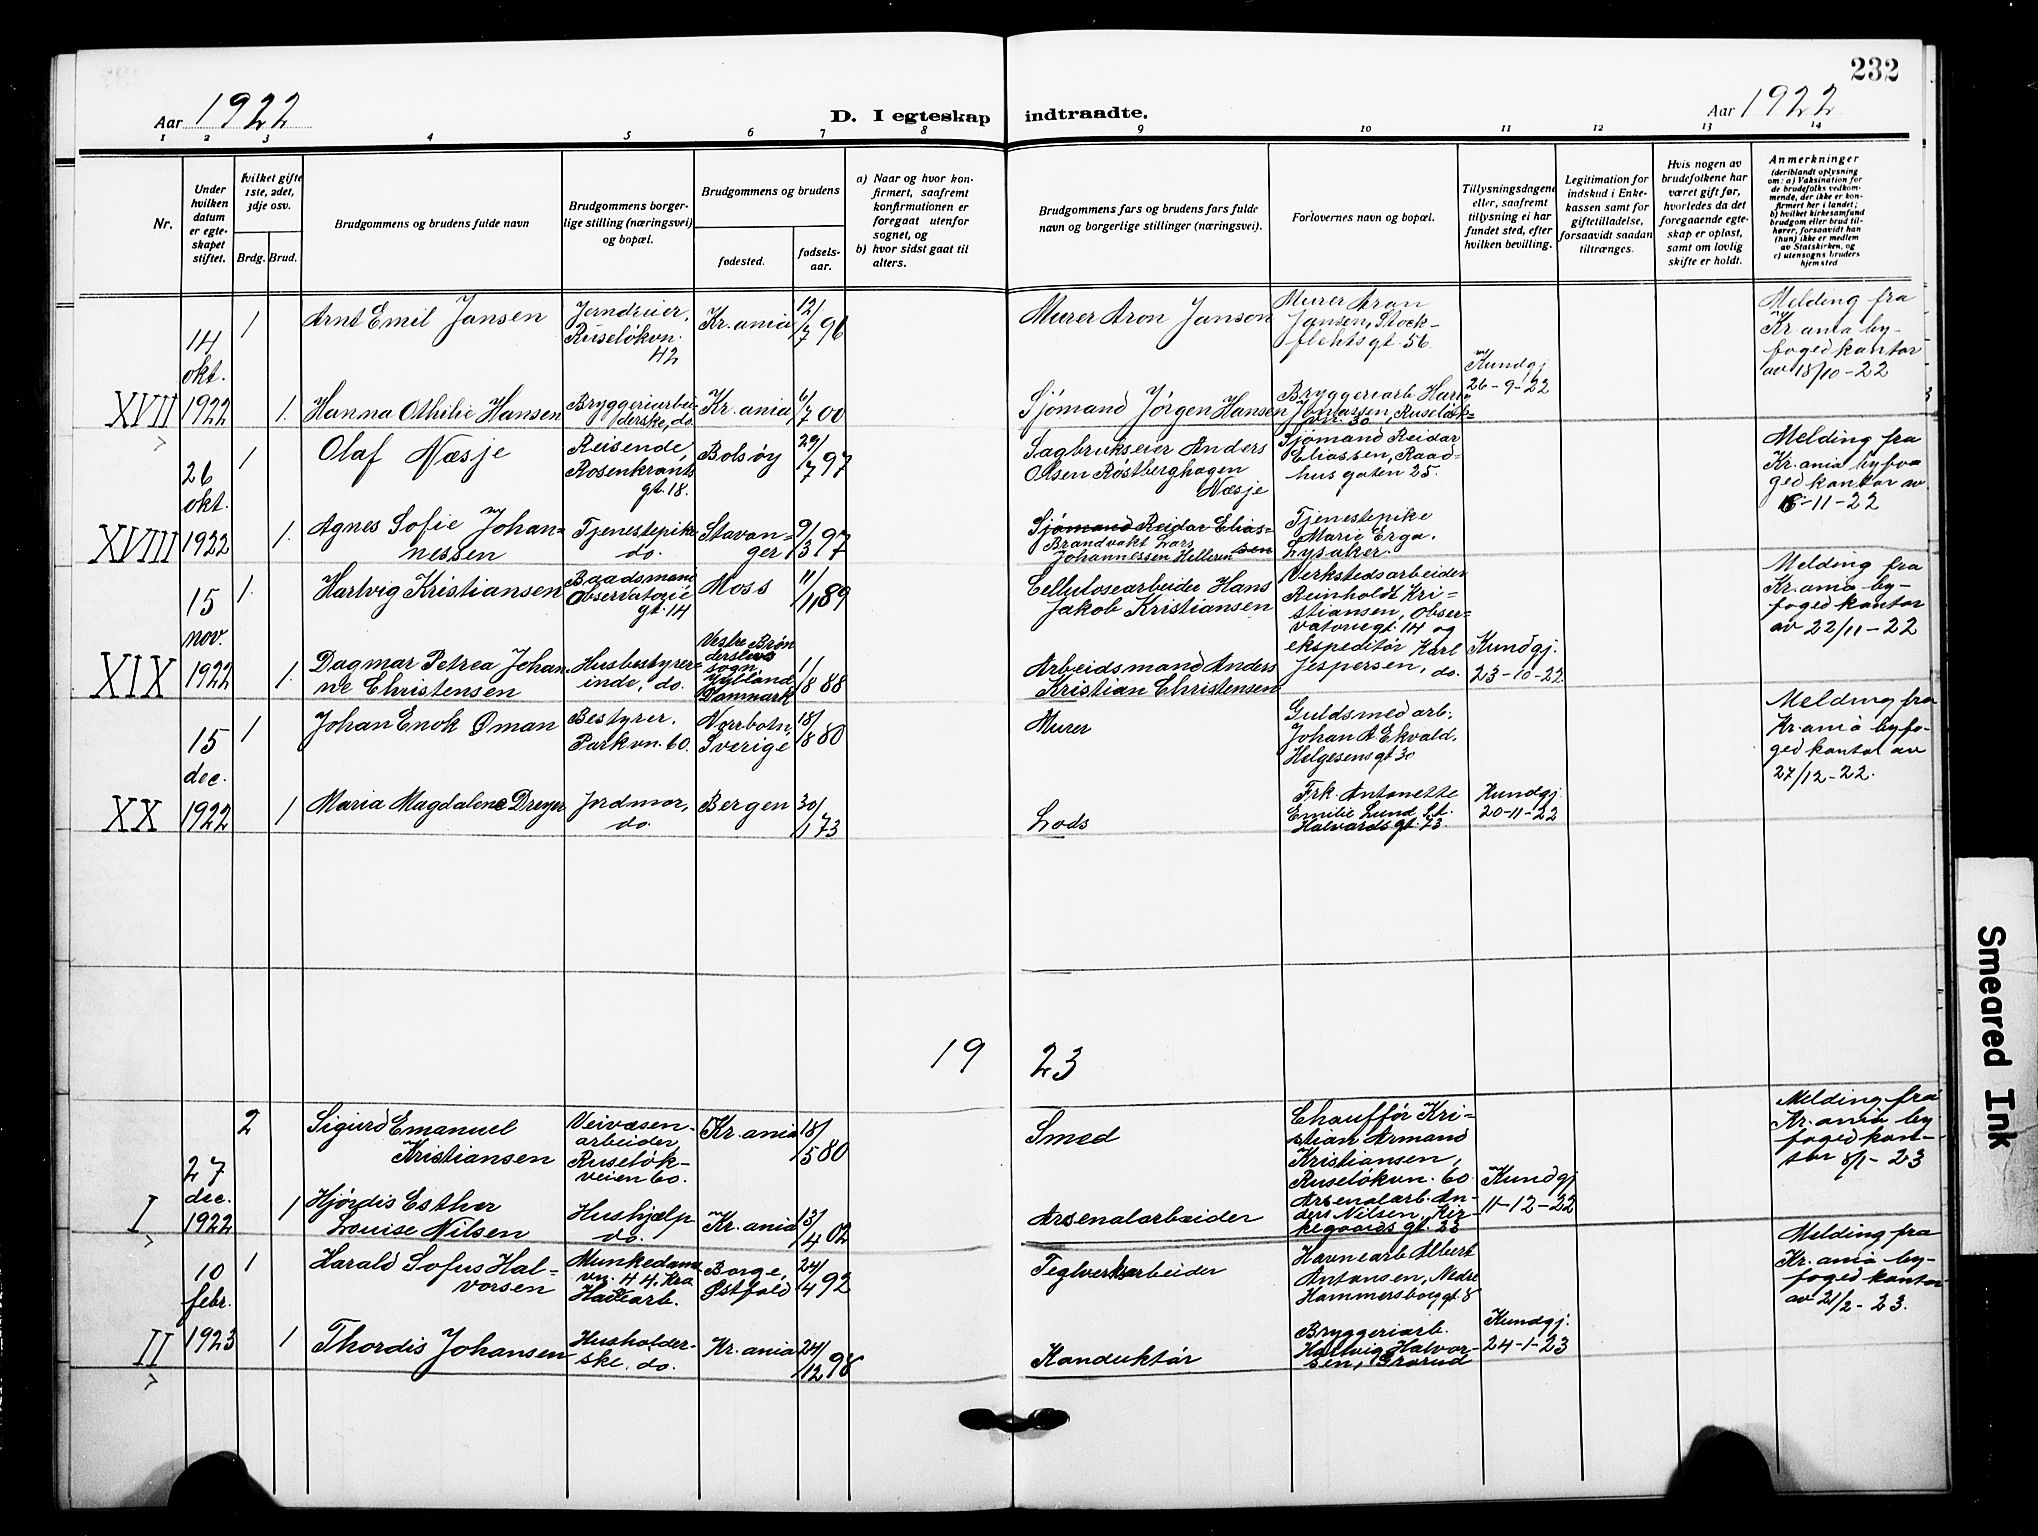 232
Aar 1922
D. I egteskap indtraadte.
Aar 1922
1 2 3 4 5 6 7 8 9 10 11 12 13 14
Nr.
Under hvilken datum er egteskapet stiftet.
hvilket gifte 1ste, 2det, 3dje osv.
Brdg. Brud.
Brudgommens og brudens fulde navn
Brudgommens borgerlige stilling (næringsvei) og bopæl.
Brudgommens og brudens
fødested.
fødselsaar.
a) Naar og hvor konfirmert, saafremt konfirmationen er foregaat utenfor sognet, og
b) hvor sidst gaat til alters.
Brudgommens fars og brudens fars fulde navn og borgerlige stillinger (næringsvei).
Forlovernes navn og bopæl.
Tillysningsdagene eller, saafremt tillysning ei har fundet sted, efter hvilken bevilling.
Legitimation for indskud i Enkekassen samt for giftetilladelse, forsaavidt saadan tiltrænges.
Hvis nogen av brudefolkene har været gift før, hvorledes da det foregaaende egteskap er opløst, samt om lovlig skifte er holdt.
Anmerkninger
(deriblandt oplysning om: a) Vaksination for de brudefolks vedkommende, der ikke er konfirmert her i landet;
b) hvilket kirkesamfund brudgom eller brud tilhører, forsaavidt han (hun) ikke er medlem av Statskirken, og
c) utensogns bruders hjemsted
XVII
14 okt. 1922
1
Arnt Emil Jansen
Jerndreier, Ruseløkvn. 42
Kr.ania
12/7 96
Murer Aron Janson
Murer Aron Jansen, Stockflethsgt. 56
Kundgj. 26-9-22
Melding fra Kr.ania byfogedkontor av 18/10-22
1.
Hanna Othilie Hansen
Bryggeriarbeiderske, do.
Kr.ania
6/7 00
Sjømand Jørgen Hansen
Bryggeriarb. Harry Jonassen, Ruseløkvn. 30
XVIII
26 okt. 1922
1
Olaf Næsje
Reisende, Rosenkrantsgt. 18.
Bolsøy
29/7 97
Sagbrukseier Anders Olsen Røstberghagen Næsje
Sjømand Reidar Eliassen, Raadhusgaten 25.
Melding fra Kr.ania byfogedkontor av 6-11-22
1.
Agnes Sofie Johannessen
Tjenestepike do.
Stavanger
9/3 97
Sjømand Reidar Eliassen
Brandvakt Lars Johannessen Helleren
Tjenestepike Marie Erga. Lysaker.
XIX
15 nov. 1922
1.
Hartvig Kristiansen
Baadsmand Observatoriegt. 14
Moss
11/11 89
Cellulosearbeider Hans Jakob Kristiansen
Verkstedsarbeider Reinholdt Kristiansen, Observatoriegt. 14 og ekspeditør Karl Jespersen, do.
Kundgj. 23-10-22
Melding fra Kr.ania byfogedkontor av 22/11-22
1.
Dagmar Petrea Johanne Christensen
Husbestyrerinde, do.
Vestre Brønderslevs sogn, Danmark
1/8 88
Arbeidsmand Anders Kristian Christensen
XX
15 dec. 1922
1
Johan Enok Øman
Bestyrer, Parkvn. 60.
Norrbotn, Sverige
18/8 80
Murer
Guldsmedarb. Johan A. Ekvald, Helgesensgt 30
Melding fra Kr.ania byfogedkontor av 27/12-22.
1
Maria Magdalene Dreyer
Jordmor, do.
Bergen
30/1 73
Lods
Frk. Antonette Emilie Lund St. Halvardsgt. 73
Kundgj. 20-11-22
19 23
I
27 dec. 1922
2
Sigurd Emanuel Kristiansen
Veivæsenarbeider, Ruseløkveien 60.
Kr.ania
18/5 80
Smed
Chauffør Kristian Armand Kristiansen, Ruseløkvn. 60
Kundgj 11-12-22
Melding fra Kr.ania byfogedkontor 8/1-23
1
Hjørdis Esther Louise Nilsen
Hushjælp do.
Kr.ania
13/4 02
Arsenalarbeider
Arsenalarb. Anders Nilsen, Kirkegaards gt. 22
II
10 febr. 1923
1
Harald Sofus Halvorsen
Munkedamsvn. 44, Kra Havnearb.
Borge, Østfold
24/4 92
Teglverksarbeider
Havnearb Albert Antonsen, Nedre Hammersborggt 8
Kundgj. 24-1-23
Melding fra Kr.ania byfogedkontor av 21/2-23.
1
Thordis Johansen
Husholderske, do.
Kr.ania
24/12 98
Konduktør
Bryggeriarb. Hartvig Halvorsen, Grorud
Smeared Ink